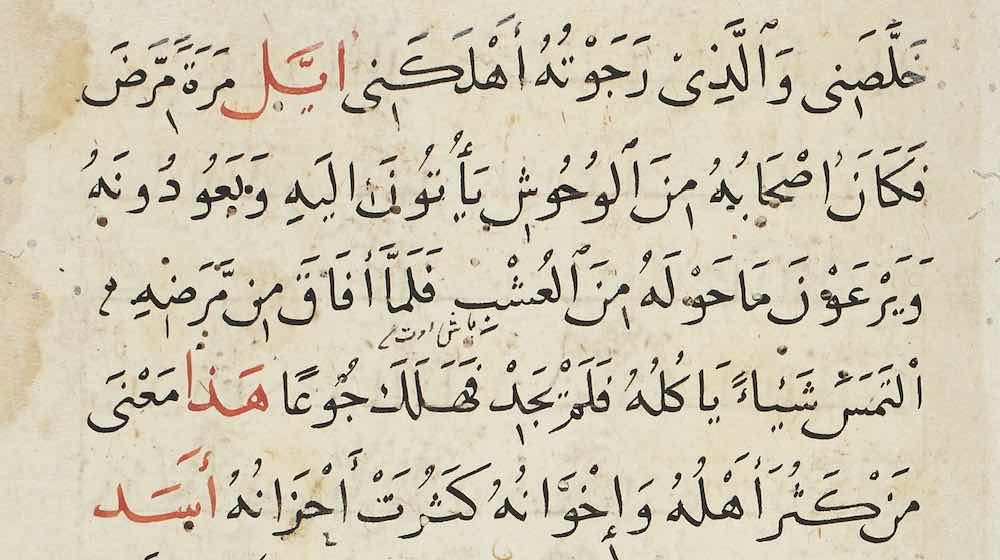 خَلَّصَنِى وَٱلَّذِىْ رَجَوْتُهُ أَهْلَكَنِى اِيَّل مَرَةً مَّرِضَ
فَكَانَ اَصْحَابُهُ مِنَ ٱلوُحُوشِ يَأْتُونَ اِلَيهِ وَيَعُودُونَهُ
وَيَرْعَوْنَ مَا حَوْلَهُ مِنَ ٱلعُشْبِ فَلَمَّا أَفَاقَ مِن مَّرَضِهِ
اْلتَمَسَ شَيْاءً يَاكُلُهُ فَلَمْ يَجِدْ فَهَلَكَ جُوعًا هَذا مَعْنَى
مَنْ كَثُرَ أَهْلُهُ وَاِخْوَانُهُ كَثُرَتْ أَحْزَانُهُ أَسَد